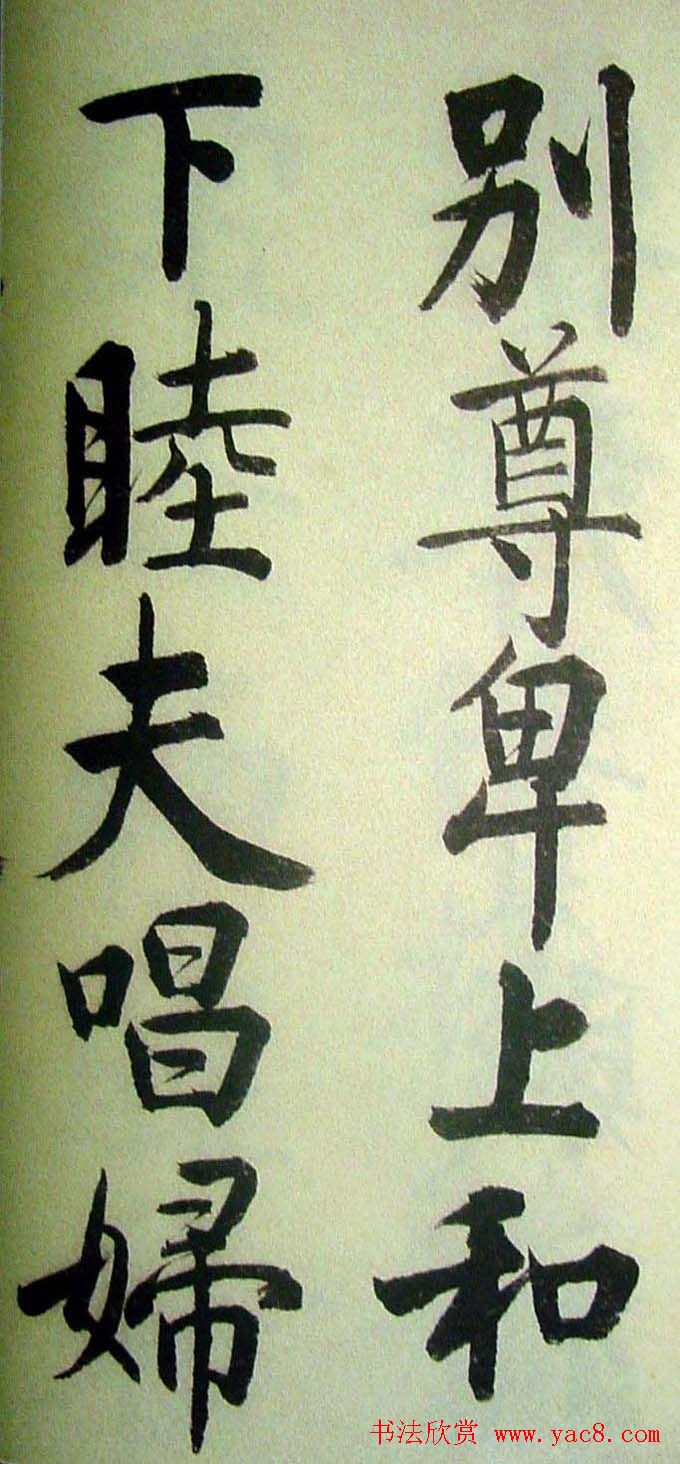 别尊卑上和
下睦夫唱婦
书法欣赏 www.yac8.com